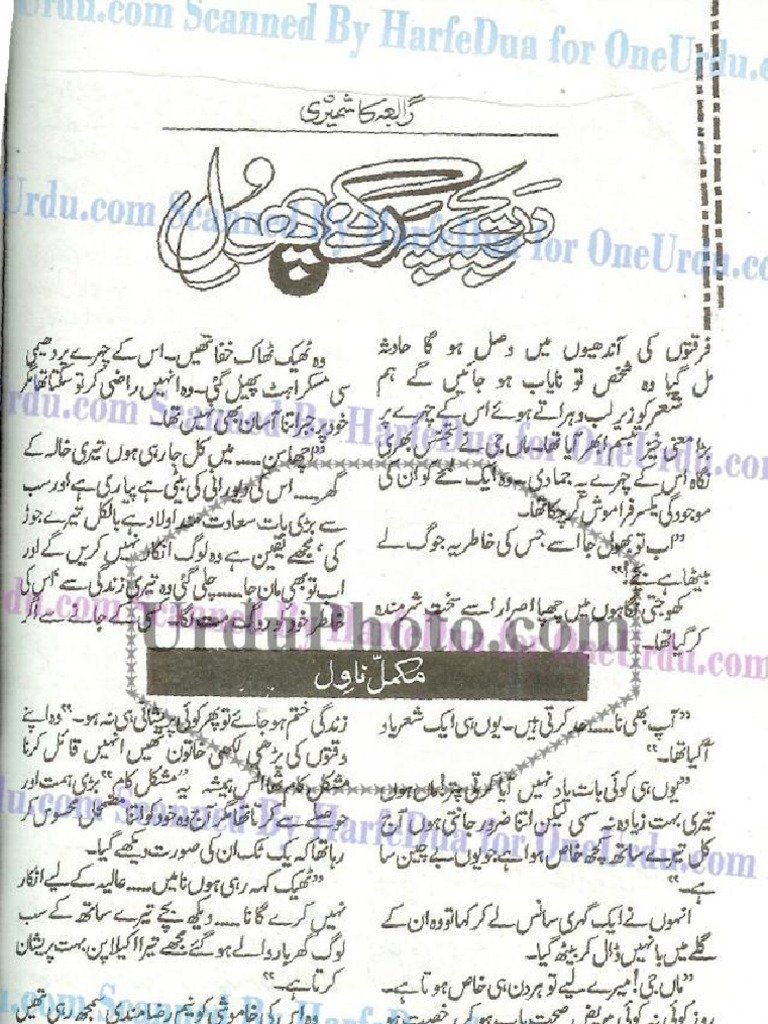 Urdu.com Scanned By HarfeDua for OneUrdu.com
رابعہ کاشمیری
دریچے پہ رکھے پھول
فرقتوں کی آندھیوں میں وصل ہو گا حادثہ
مل گیا وہ شخص تو نایاب ہو جائیں گے ہم
شعر کو زیر لب دہراتے ہوئے اس کے چہرے پر
بڑا معنی خیز تبسم ابھر آیا تھا۔ ماں جی نے تجسس بھری
نگاہ اس کے چہرے پہ جمادی۔ وہ ایک لمحے کو ان کی
موجودگی یکسر فراموش کر چکا تھا۔
”اب تو بھول جا اسے جس کی خاطر یہ جوگ لے
بیٹھا ہے۔“
کھوجتی نگاہوں میں چھپا اصرار اسے سخت شرمندہ
کر گیا تھا۔
”آپ بھی نا..... حد کرتی ہیں۔ یوں ہی ایک شعر یاد
آگیا تھا۔“
”یوں ہی کوئی بات یاد نہیں آیا کرتی پتر! ماں ہوں
تیری بہت زیادہ نہ سہی لیکن اتنا ضرور جانتی ہوں آج
کل تیرے ساتھ کچھ خاص ہوا ہے جو یوں بے چین سا
ہے۔“
انہوں نے ایک گہری سانس لے کر کہا تو وہ ان کے
گلے میں بانہیں ڈال کر بیٹھ گیا۔
”ماں جی! میرے لیے تو ہر دن ہی خاص ہوتا ہے۔
روز کوئی نہ کوئی مریض صحت یاب ہو کر رخصت ہو
وہ ٹھیک ٹھاک خفا تھیں۔ اس کے چہرے پر دھیمی
سی مسکراہٹ پھیل گئی۔ وہ انہیں راضی کر تو سکتا تھا مگر
خود پر جبر اتنا آسان بھی نہیں تھا۔
”اچھا سن..... میں کل جا رہی ہوں تیری خالہ کے
گھر..... اس کی دیورانی کی بیٹی ہے پیاری ہے اور سب
سے بڑی بات سعادت مند اولاد ہے بالکل تیرے جوڑ
کی، مجھے یقین ہے وہ لوگ انکار نہیں کریں گے اور
اب تو بھی مان جا..... چلی گئی وہ تیری زندگی سے اس کی
خاطر خود کو روگ مت لگا۔ کسی کے جانے سے اگر
UrduPhoto.com
مکمل ناول
زندگی ختم ہو جائے تو پھر کوئی پریشانی ہی نہ ہو۔“ وہ اپنے
وقتوں کی پڑھی لکھی خاتون تھیں انہیں قائل کرنا
مشکل کام تھا اس ہمیشہ یہ ”مشکل کام“ بڑی ہمت اور
حوصلے سے کرتا تھا مگر آج وہ خود کو اتنا مضمحل محسوس کر
رہا تھا کہ یک ٹک ان کی صورت دیکھے گیا۔
”ٹھیک کہہ رہی ہوں نا میں..... عالیہ کے لیے انکار
نہیں کرے گا نا..... دیکھ بچے تیرے ساتھ کے سب
لوگ گھر بار والے ہو گئے مجھے تیرا اکیلا پن بہت پریشان
کرتا ہے۔“
وہ اس کی خاموشی کو نیم رضا مندی سمجھ رہی تھیں